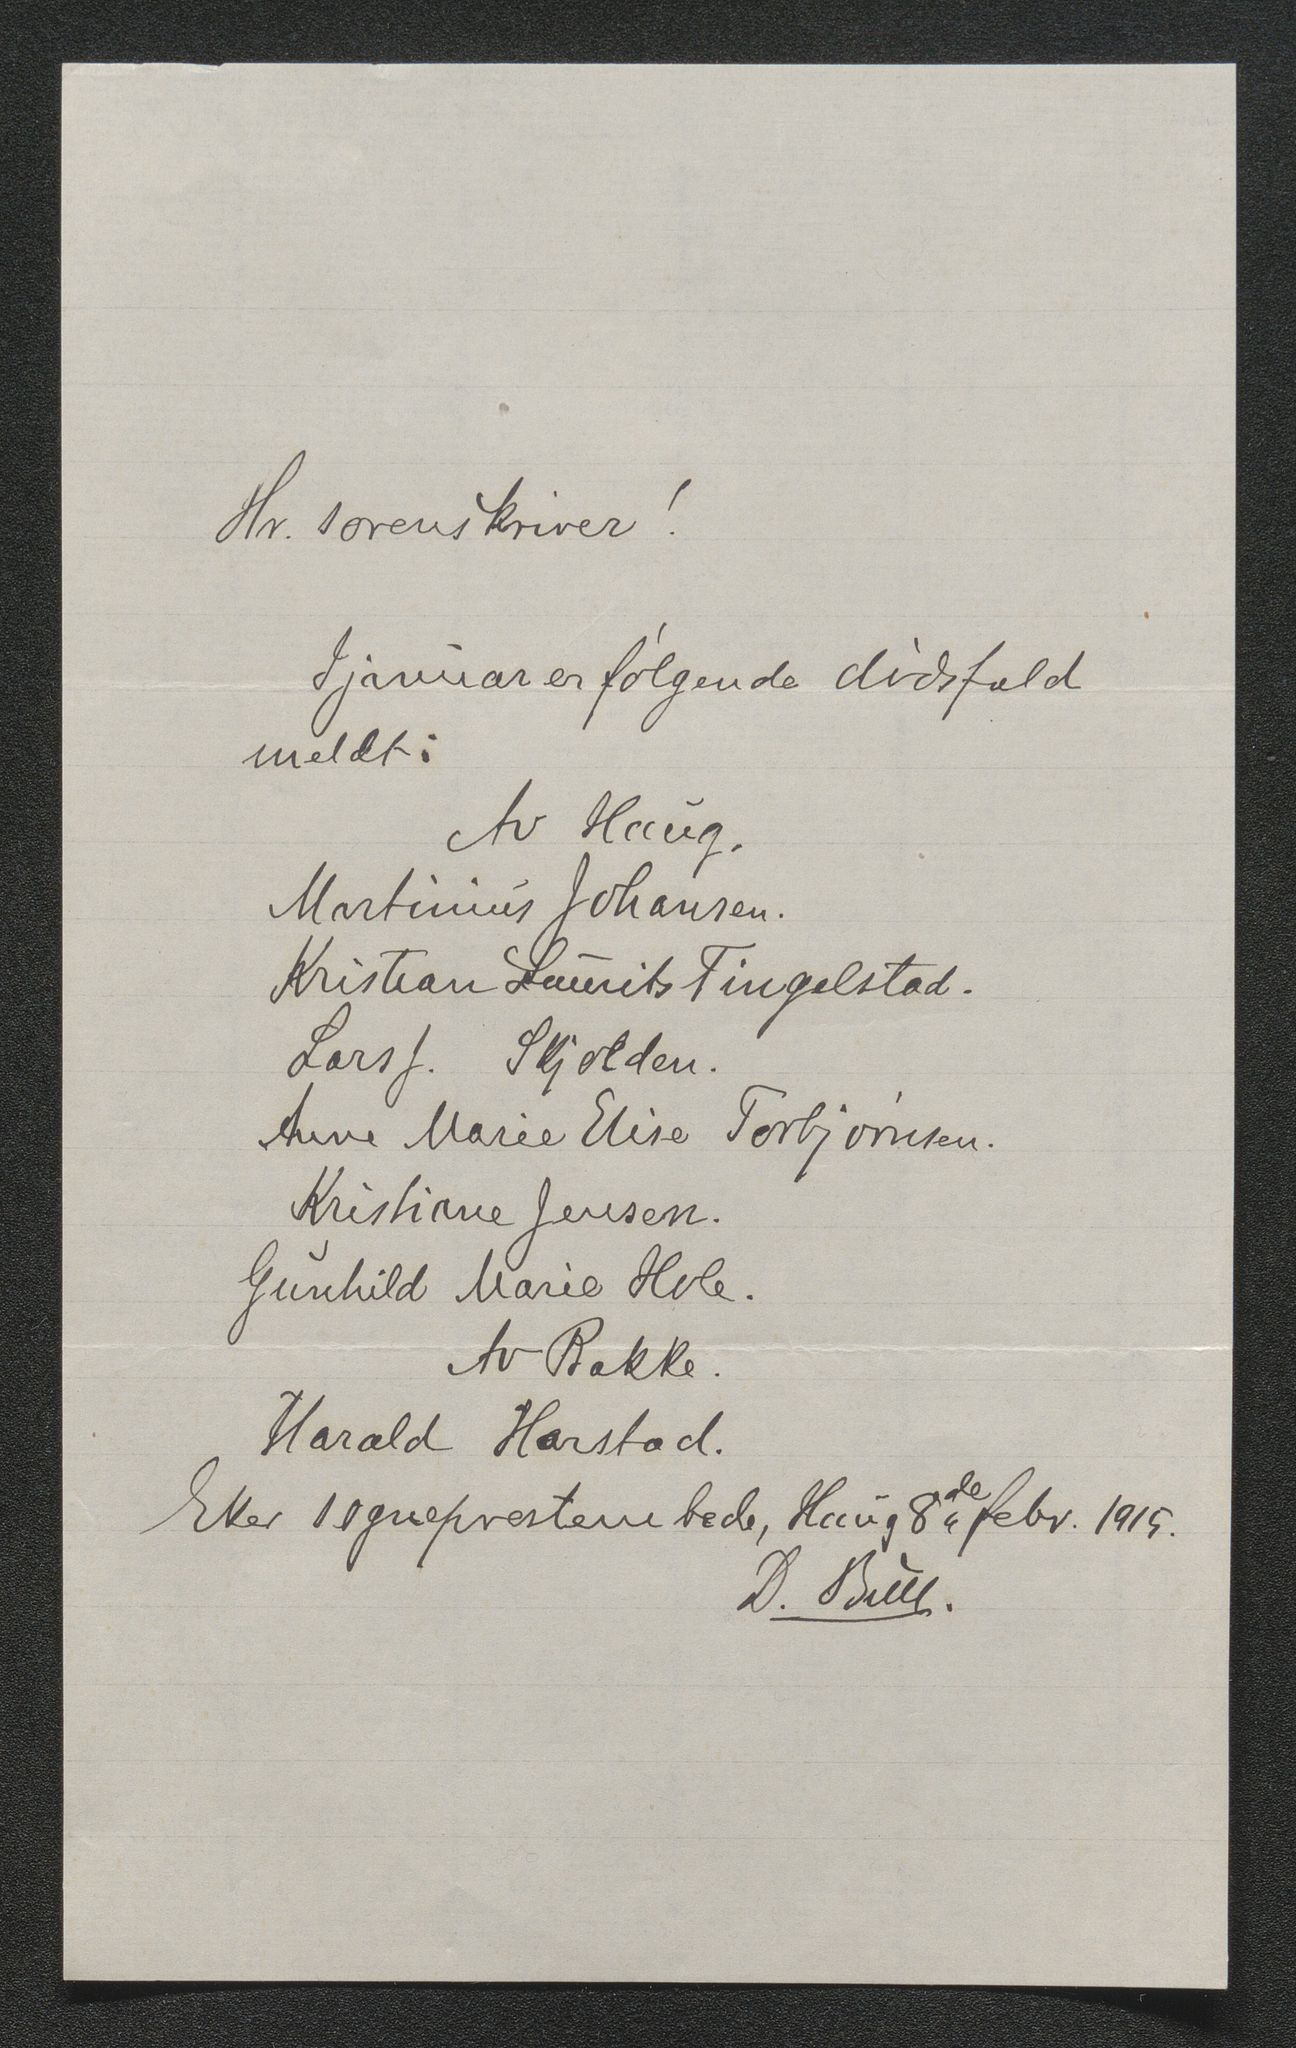 Hr. sorenskriver!
I januar er følgende dødsfald
meldt:
Av Haug.
Martinius Johansen.
Kristian Laurits Tingelstad.
Lars J. Skjolden.
Anne Marie Elise Torbjørnsen.
Kristiane Jensen.
Gunhild Marie Hole.
Av Bakke.
Harald Harstad.
Eker sogneprestembede, Haug 8de febr. 1915.
D. Bull.